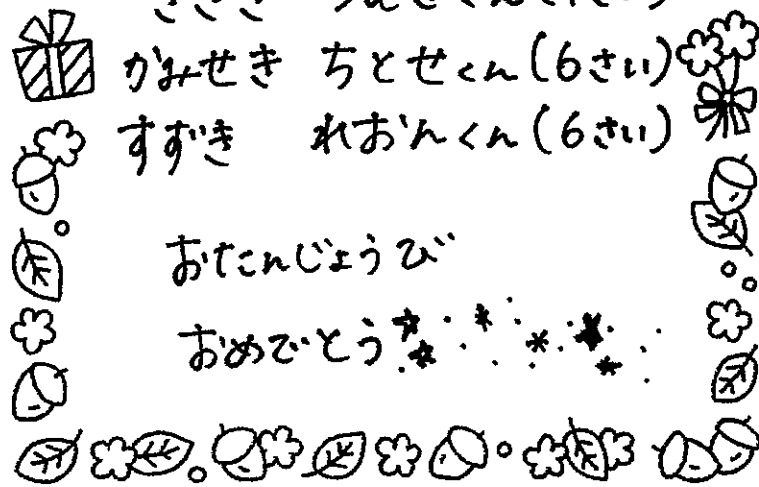 かみせき ちとせくん(6さい)
すずき れおんくん(6さい)
おたんじょうび
おめでとう